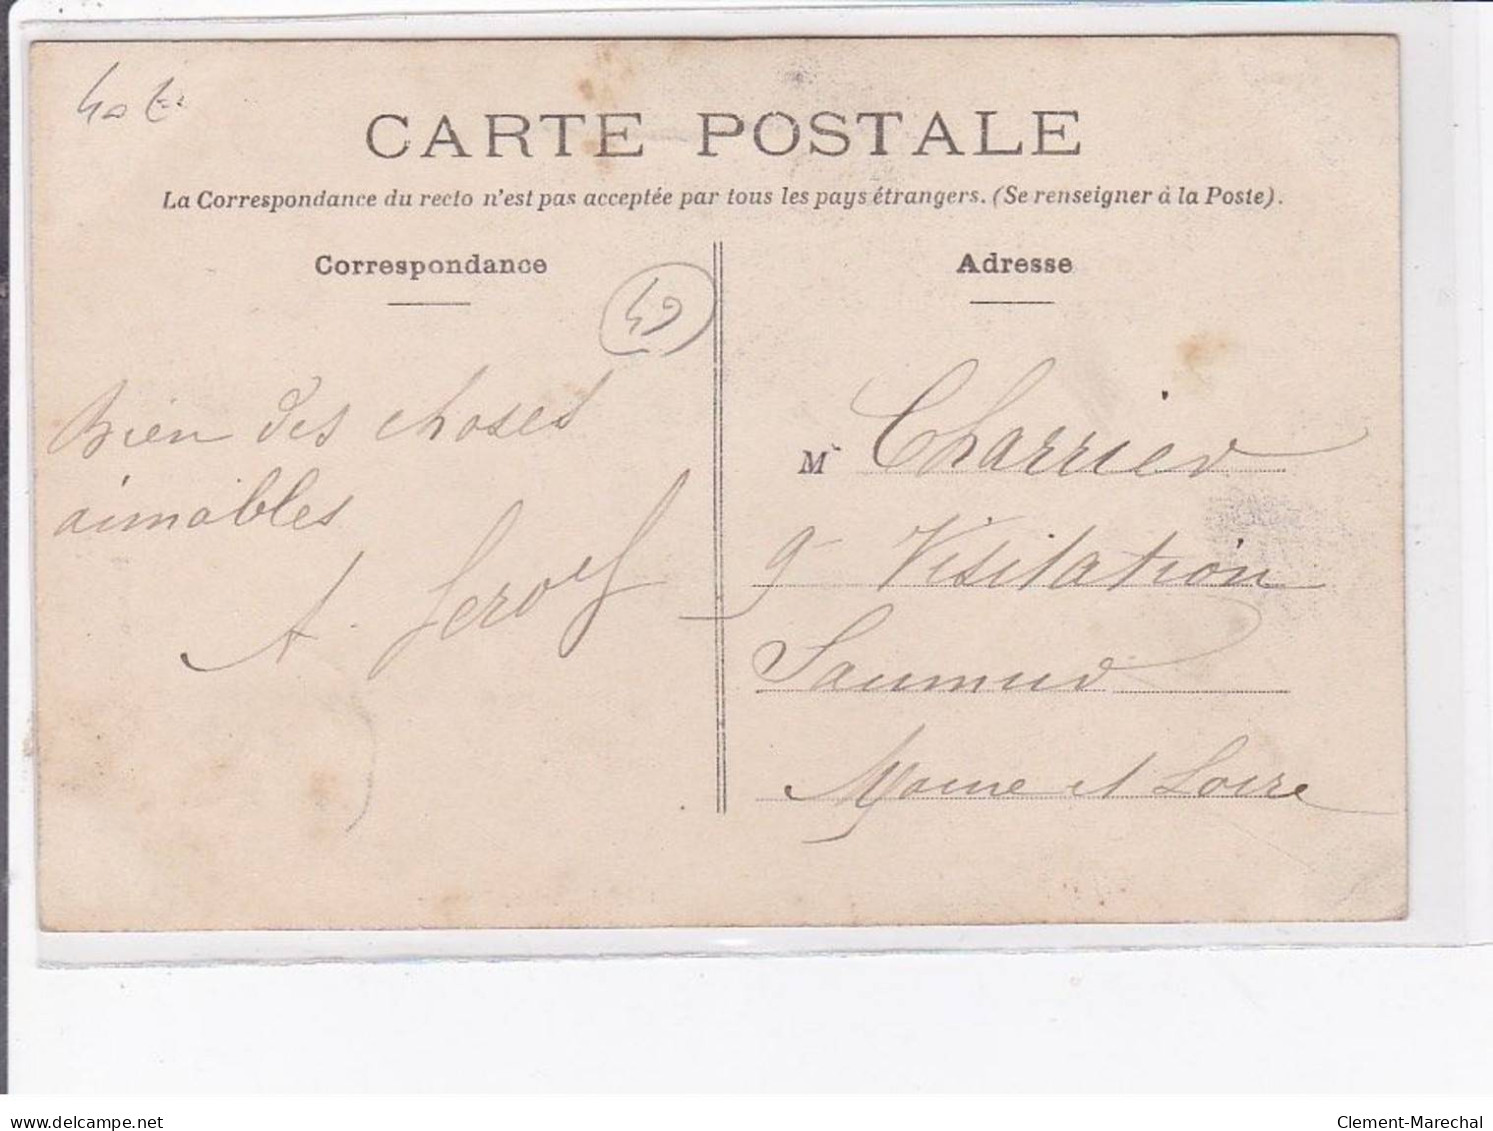 CARTE POSTALE
La Correspondance du recto n'est pas acceptée par tous les pays étrangers. (Se renseigner à la Poste).
Correspondance
49
Bien des choses
aimables
A.
Adresse
M Charrier
Visitation
Saumur
Maine et Loire
delcampe.net
Clement-Marechal